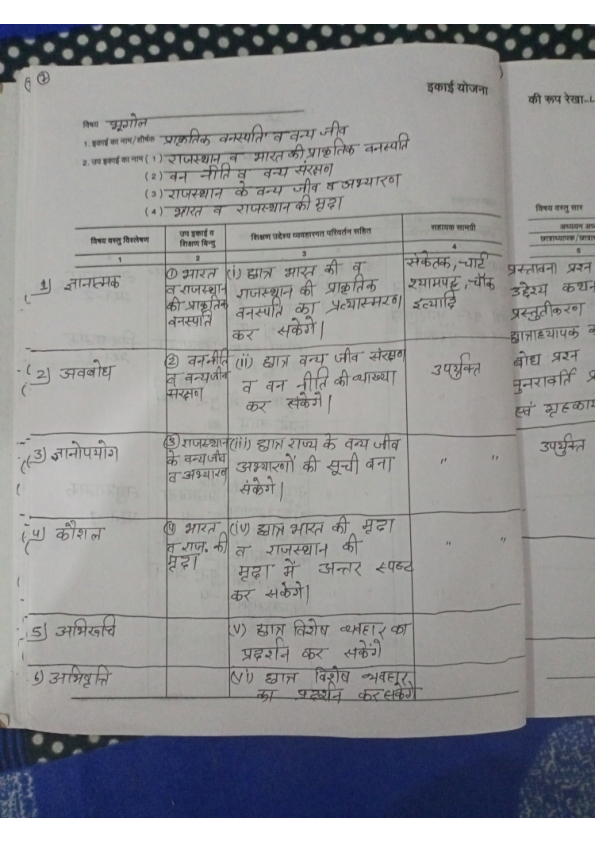 इकाई योजना
विषय भूगोल
1. इकाई का नाम/शीर्षक प्राकृतिक वनस्पति व वन्य जीव
2. उप इकाई का नाम (1) राजस्थान व भारत की प्राकृतिक वनस्पति
(2) वन नीति व वन्य संरक्षण
(3) राजस्थान के वन्य जीव व अभ्यारण
(4) भारत व राजस्थान की मृदा
विषय वस्तु विश्लेषण
उप इकाई व
शिक्षण बिन्दु
शिक्षण उद्देश्य व्यवहारगत परिवर्तन सहित
सहायक सामग्री
1 2 3 4
1) ज्ञानात्मक
① भारत
व राजस्थान
की प्राकृतिक
वनस्पति
(i) छात्र भारत की व
राजस्थान की प्राकृतिक
वनस्पति का प्रत्यास्मरण
कर सकेगे।
संकेतक, चार्ट
श्यामपट्ट, चौक
इत्यादि
2) अवबोध
② वननीति
व वन्यजीव
संरक्षण
(ii) छात्र वन्य जीव संरक्षण
व वन नीति की व्याख्या
कर सकेगे।
उपर्युक्त
3) ज्ञानोपयोग
③ राजस्थान
के वन्यजीव
व अभ्यारण
(iii) छात्र राज्य के वन्य जीव
अभ्यारणों की सूची बना
सकेगे।
" "
4) कौशल
④ भारत
व राज. की
मृदा।
(iv) छात्र भारत की मृदा
व राजस्थान की
मृदा में अन्तर स्पष्ट
कर सकेगे।
" "
5) अभिरूचि
(v) छात्र विशेष व्यवहार का
प्रदर्शन कर सकेंगे
6) अभिवृत्ति
(vi) छात्र विशेष व्यवहार
का प्रदर्शन कर सकेंगे
की रूप रेखा
विषय वस्तु सार
5
प्रस्तावना प्रश्न
उद्देश्य कथन
प्रस्तुतीकरण
छात्राध्यापक क
बोध प्रश्न
पुनरावर्ति प्र
एवं गृहकार्य
उपर्युक्त